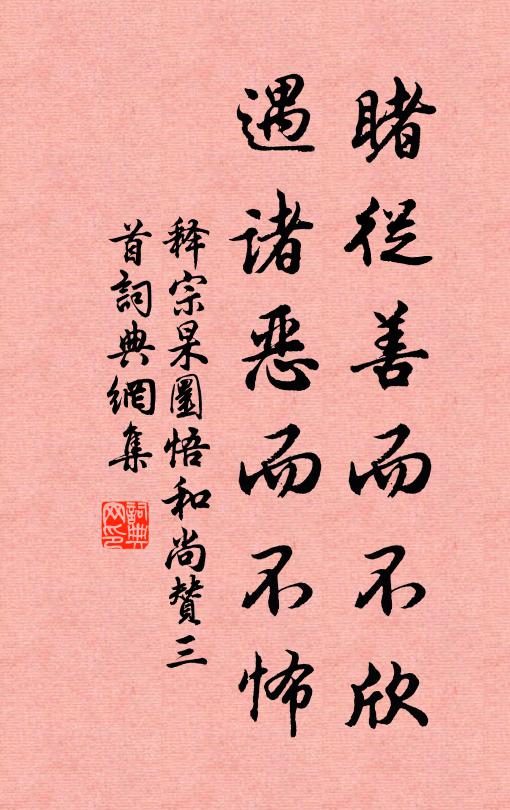 睹從善而不欣
遇諸惡而不怖
释宗杲圜悟和尚贊三
首詞典網集
詞典
网印